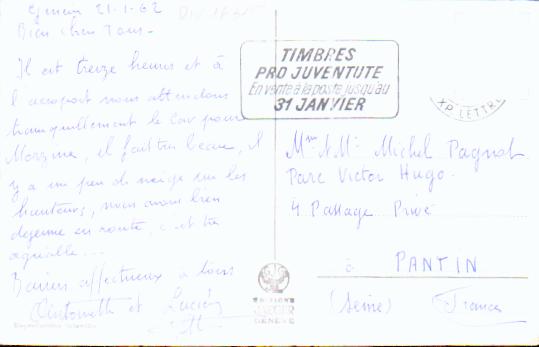 21-1-62
Bien chers Tous -
Il est treize heures et à
l'aeroport nous attendons
tranquillement le car pour
Morzine, il fait très beau, il
y a un peu de neige sur les
hauteurs, nous avons bien
dejeuné en route, c'est très
agréable...
Baisers affectueux à tous
et Lucien
TIMBRES
PRO JUVENTUTE
En vente à la poste jusqu'au
31 JANVIER
XP. LETTRE
Mme & Mr Michel Pagnot
Parc Victor Hugo
4 Passage Privé
à PANTIN
(Seine) France
EDITIONS
JAEGER
GENÈVE